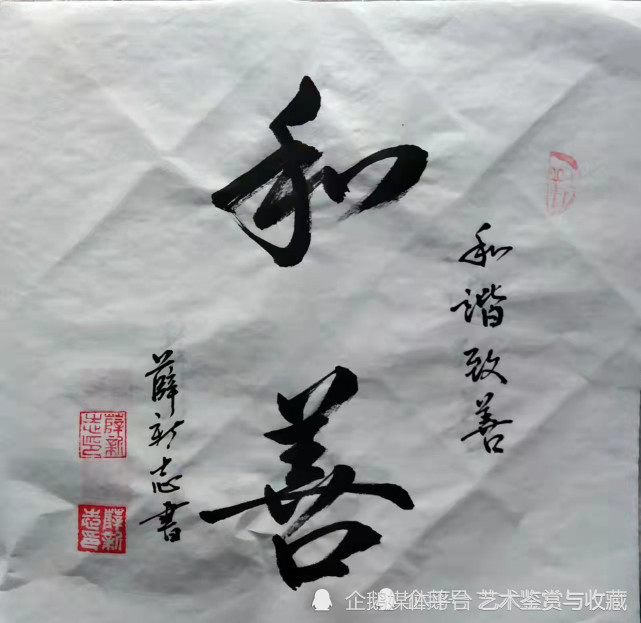 和善
和谐致善
薛新志書
薛新志印
薛新志印
企鹅媒体平台 艺术鉴赏与收藏